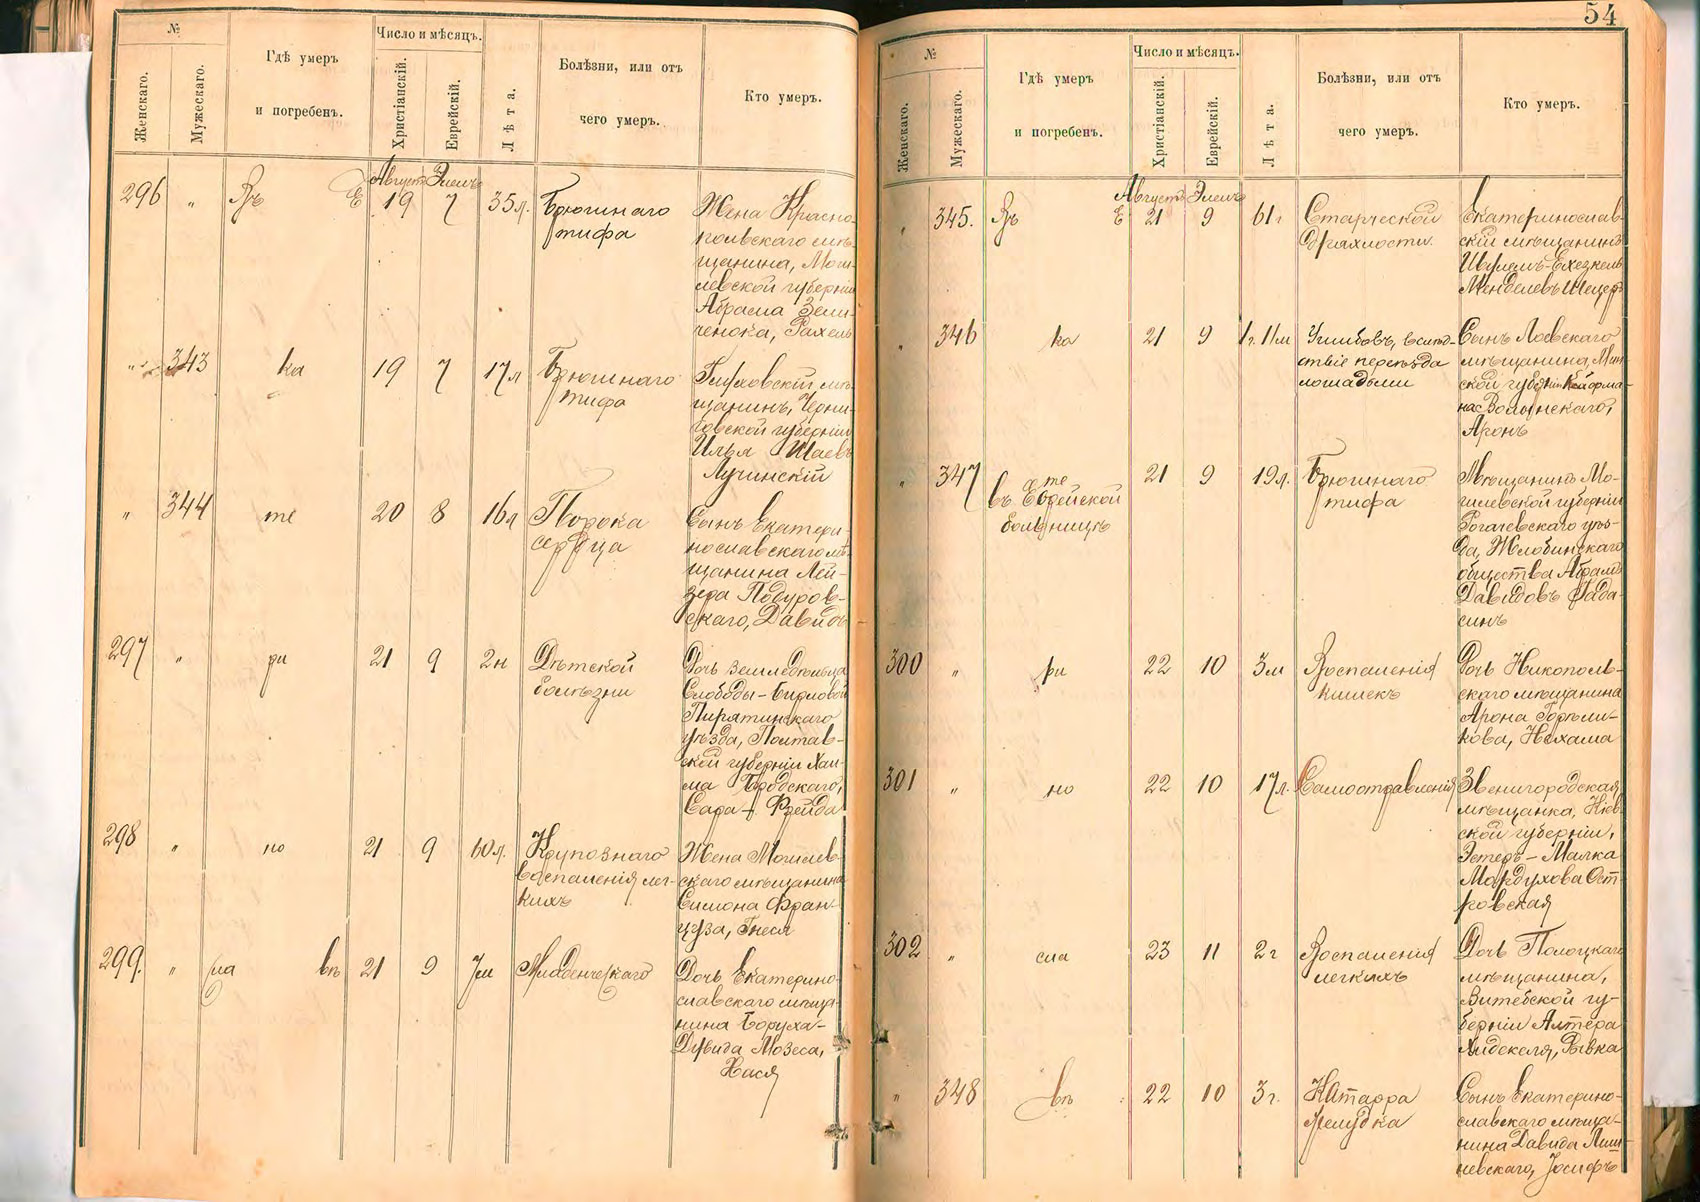 №
Женскаго.
Мужескаго.
Гдѣ умеръ
и погребенъ.
Число и мѣсяцъ.
Христіанскій.
Еврейскій.
Лѣта.
Болѣзни, или отъ
чего умеръ.
Кто умеръ.
Августъ Элелъ
296 " Въ Е 19 7 35л.
Брюшнаго
тифа
Жена Красно-
польскаго мѣ-
щанина, Моги-
левской губерніи
Абрама Зели-
ченока, Рахель
" 343 ка 19 7 17л
Брюшнаго
тифа
Глуховскій мѣ-
щанинъ, Черни-
говской губерніи
Илья Шаевъ
Лучинскій
" 344 те 20 8 16л
Порока
сердца
Сынъ Екатери-
нославскаго мѣ-
щанина Лей-
зера Подуров-
скаго, Давидъ
297 " ри 21 9 2н
Дѣтской
болѣзни
Дочь земледѣльца
Слободы-
Пирятинскаго
уѣзда, Полтав-
ской губерніи Хаи-
ма Бродскаго,
Сара-Фрейда
298 " но 21 9 60л.
Крупознаго
воспаленія лег-
кихъ
Жена Могилев-
скаго мѣщанина
Симона Фран-
цуза, Гнеся
299. " сла вѣ 21 9 7м
Младенческаго
Дочь Екатерино-
славскаго мѣща-
нина Боруха-
Дувида Мозеса,
Хася
54
№
Женскаго.
Мужескаго.
Гдѣ умеръ
и погребенъ.
Число и мѣсяцъ.
Христіанскій.
Еврейскій.
Лѣта.
Болѣзни, или отъ
чего умеръ.
Кто умеръ.
Августъ Элелъ
" 345. Въ Е 21 9 61г
Старческой
дряхлости.
Екатеринослав-
скій мѣщанинъ
Шулемъ-Ехезкель
Менделевъ
" 346 ка 21 9 1г. 11м
Ушибовъ, вслѣд-
ствіе переѣзда
лошадьми
Сынъ Лоевскаго
мѣщанина, Мин-
ской губерніи
Волынскаго,
Аронъ
" 347 те
въ Еврейской
больницѣ
21 9 19л.
Брюшнаго
тифа
Мѣщанинъ Мо-
гилевской губерніи
Рогачевскаго уѣз-
да, Жлобинскаго
общества Абрамъ
Давидовъ Фада-
синъ
300 " ри 22 10 3м
Воспаленія
кишекъ
Дочь Никополь-
скаго мѣщанина
Арона Горѣли-
кова, Нехама
301 " но 22 10 17л.
Самоотравленія
Звенигородская
мѣщанка, Кіев-
ской губерніи,
Эстеръ-Малка
Мордухова Ост-
ровская
302 " сла 23 11 2г
Воспаленія
легкихъ
Дочь Полоцкаго
мѣщанина,
Витебской гу-
берніи Алтера
Хидекеля, Ривка
" 348 вѣ 22 10 3г.
Катарра
желудка
Сынъ Екатерино-
славскаго мѣща-
нина Давида Лиш-
невскаго, Іосифъ